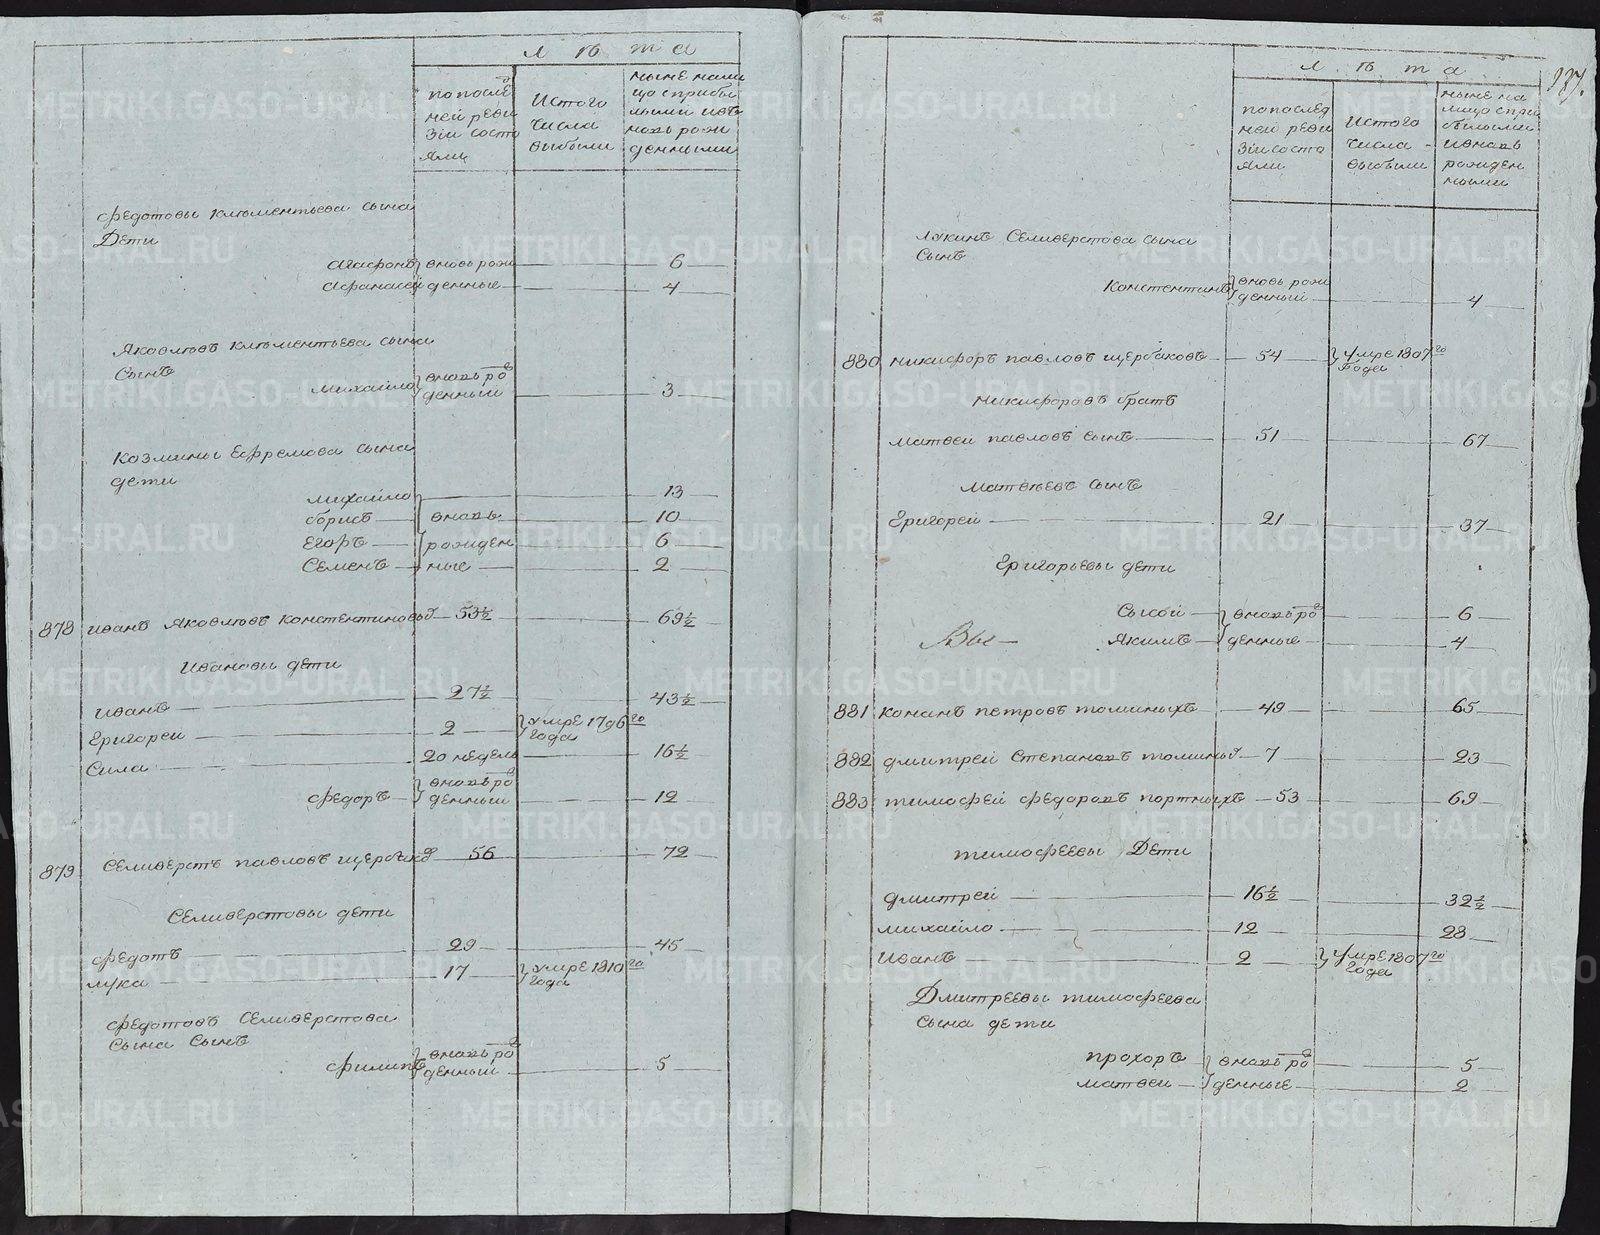 лѣта
по послѣд
ней реви
зіи состо
яли
Истого
числа
выбыли
ныне нали
цо сприбы
лыми ивѣ
новь рож
денными
Федотовы клементьева сына
Дети
Агафонъ вновь рож 6
Афанасей денные 4
Яковлевъ клементьева сына
Сынъ
михайло вновь ро 3
денный
Козмины Ефремова сына
дети
михайло 13
борисъ вновь 10
Егоръ рожден 6
Семенъ ные 2
878 иванъ Яковлевъ констентиновъ 53½ 69½
Ивановы дети
иванъ 27½ 43½
Григореи 2 умре 1796 го
Года
Сила 20 недель 16½
федоръ вновь ро
денный 12
879 Селиверстъ павловъ щербак 56 72
Селиверстовы дети
федотъ 29 45
лука 17 умре 1810 го
Года
федотовъ Селиверстова
Сына Сынъ
филипъ вновь ро
денный 5
137.
лѣта
по послед
ней реви
зіи состо
яли
Истого
числа
выбыли
ныне на
лицо спри
былыми
ивновь
рожден
ными
лукинъ Селиверстова сына
Сынъ
Констентинъ вновь рож
денный 4
880 никифоръ павловъ щербаковъ 54 умре 1807 го
Года
никифоровъ братъ
матвеи павловъ сынъ 51 67
Матвеевъ сынъ
Григореи 21 37
Григорьевы дети
Сысой вновь ро 6
Вы Якимъ денные 4
881 кононъ петровъ томиныхъ 49 65
882 дмитрей Степановъ томины 7 23
883 тимофей федоровъ портныхъ 53 69
тимофеевы Дети
дмитрей 16½ 32½
михайло 12 28
иванъ 2 умре 1807 го
Года
Дмитреевы тимофеева
сына дети
прохоръ вновь ро 5
матвеи денные 2
METRIKI.GASO-URAL.RU